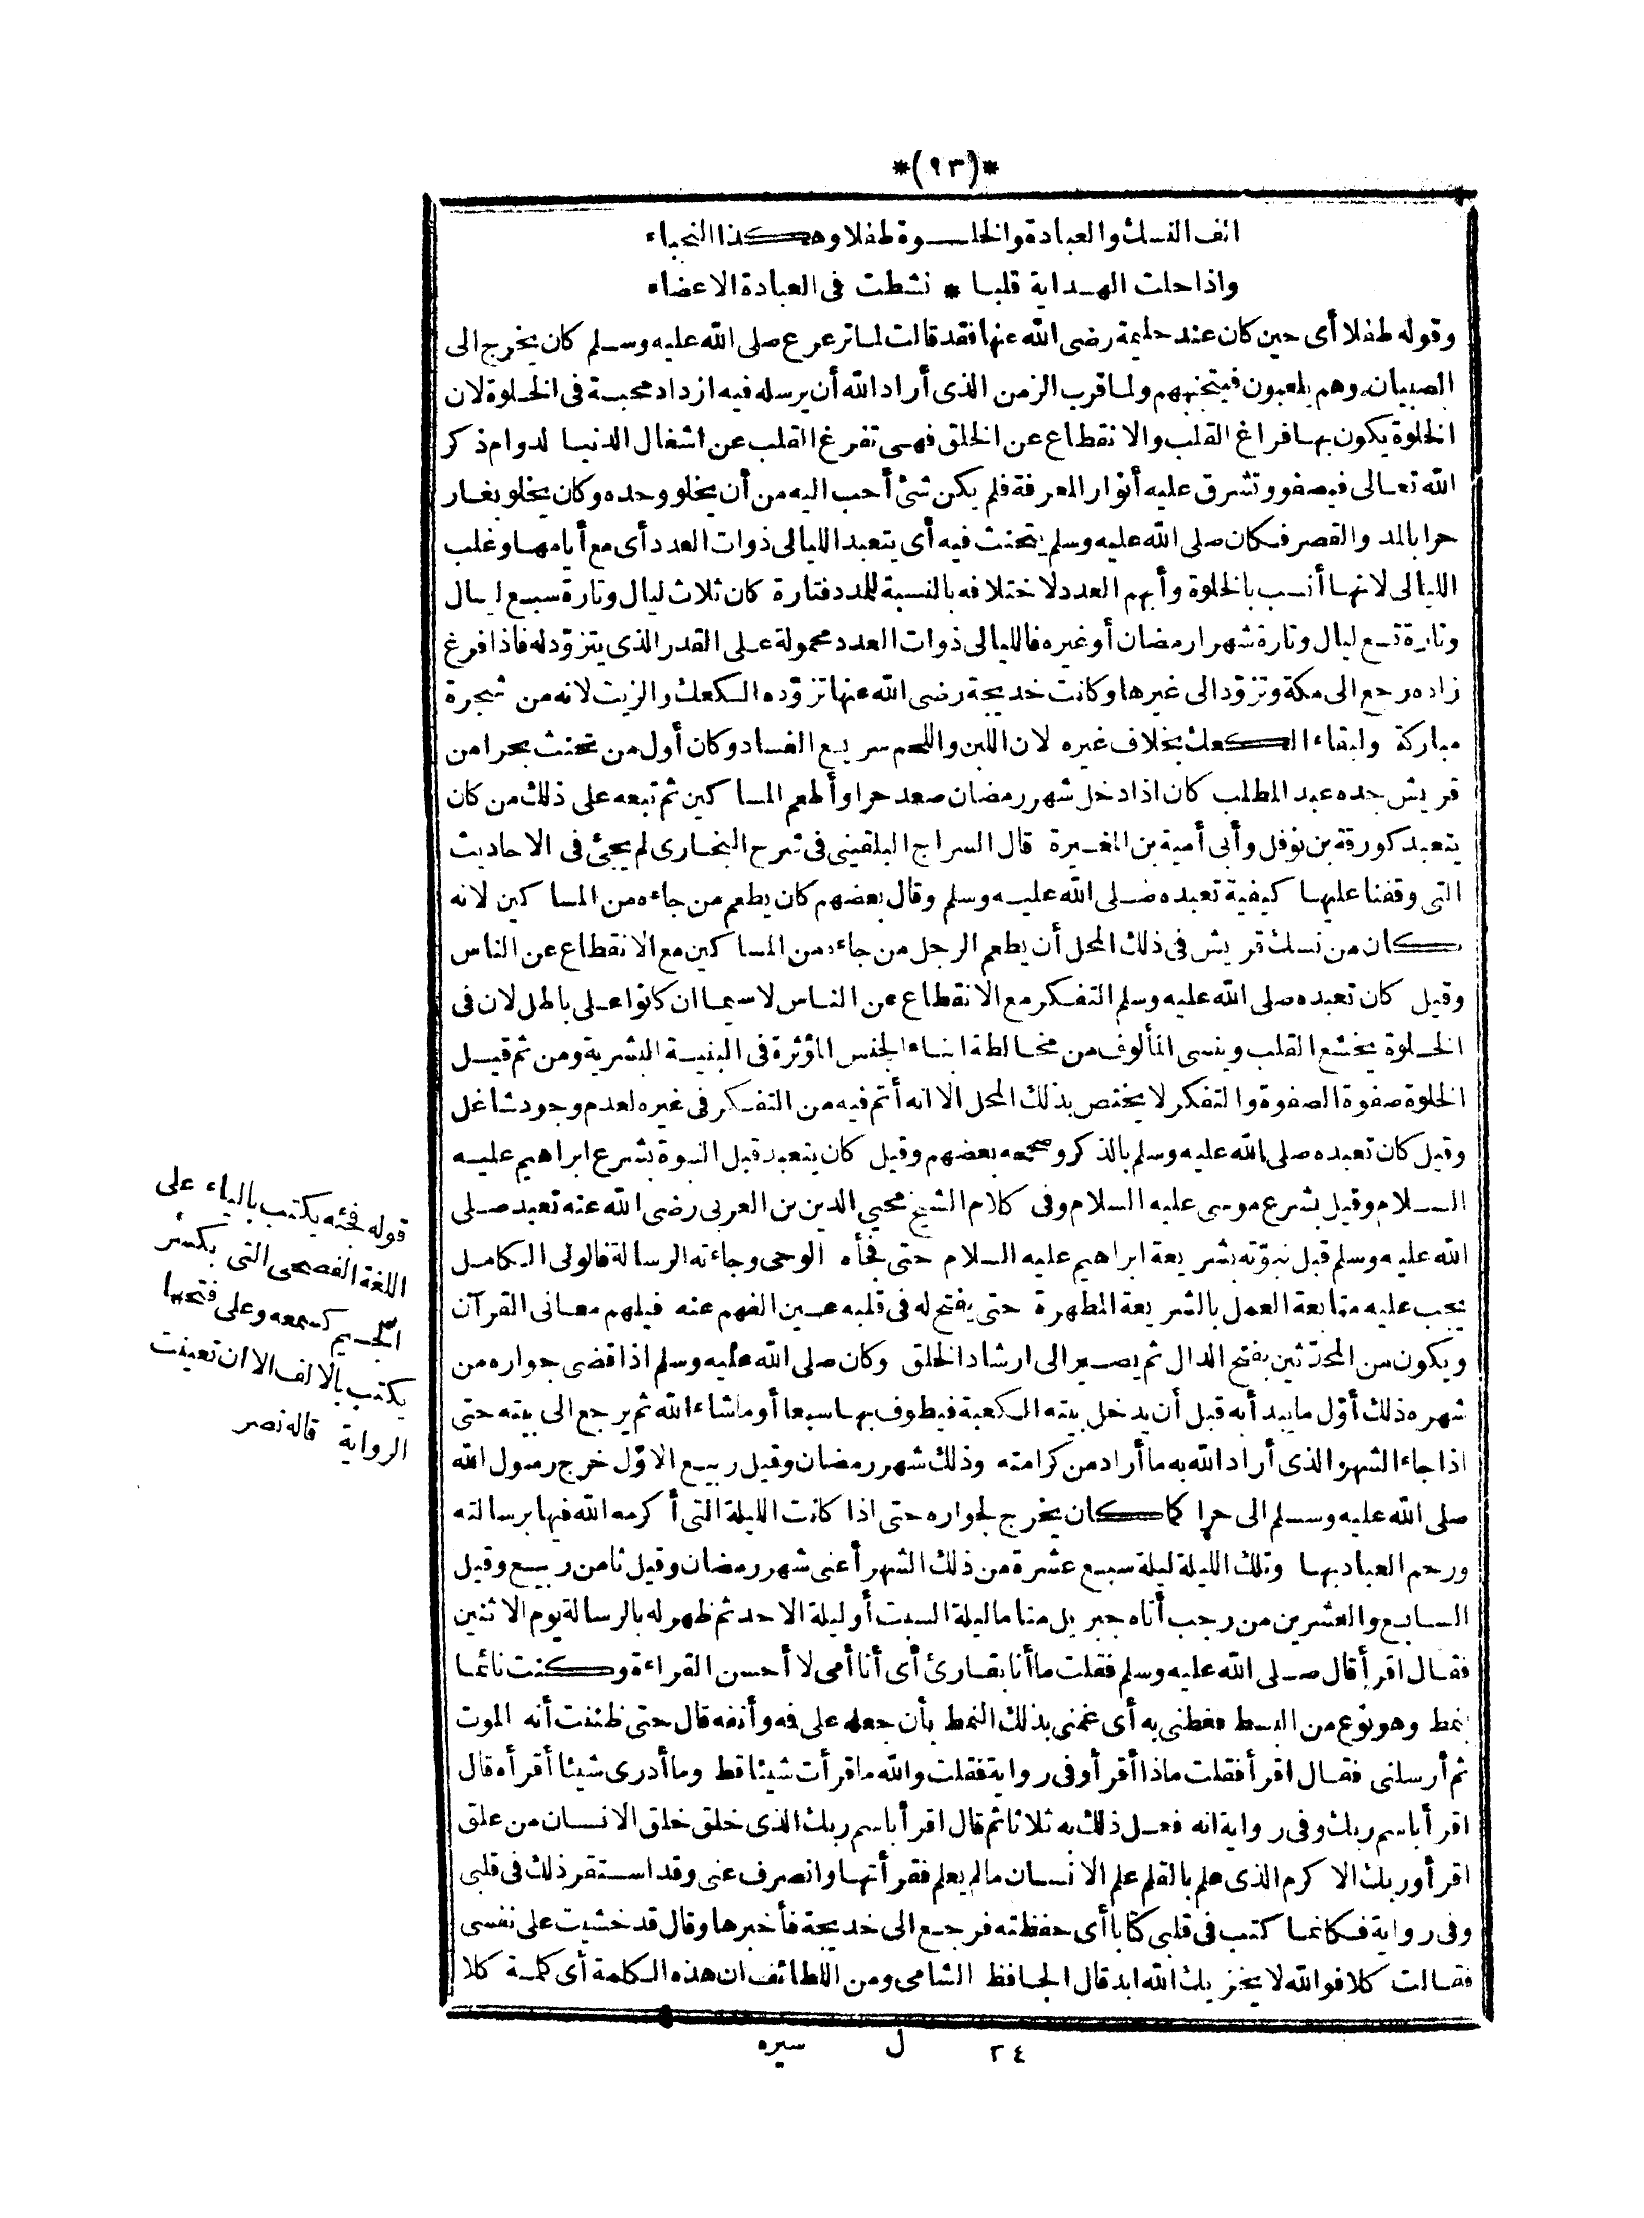 *(٩٣)*
الف النسك والعبادة والخلوة طفلا وهكذا النجباء
واذا حلت الهداية قلبا * نشطت فى العبادة الاعضاء
وقوله طفلا أى حين كان عند حليمة رضى الله عنها فقد قالت لما ترعرع صلى الله عليه وسلم كان يخرج الى
الصبيان وهم يلعبون فيتجنبهم ولما قرب الزمن الذى أراد الله أن يرسله فيه ازداد محبة فى الخلوة لان
الخلوة يكون بها فراغ القلب والانقطاع عن الخلق فهى تفرغ القلب عن اشغال الدنيا لدوام ذكر
الله تعالى فيصفو وتشرق عليه أنوار المعرفة فلم يكن شئ أحب اليه من أن يخلو وحده وكان يخلو بغار
حرا بالمد والقصر فكان صلى الله عليه وسلم يتحنث فيه أى يتعبد الليالى ذوات العدد أى مع أيامها وغلب
الليالى لانها أنسب بالخلوة وأبهم العدد لاختلافه بالنسبة للمدد فتارة كان ثلاث ليال وتارة سبع ليال
وتارة تسع ليال وتارة شهرا رمضان أو غيره فالليالى ذوات العدد محمولة على القدر الذى يتزوّد له فاذا فرغ
زاده رجع الى مكة وتزوّد الى غيرها وكانت خديجة رضى الله عنها تزوّده الكعك والزيت لانه من شجرة
مباركة ولبقاء الكعك بخلاف غيره لان اللبن واللحم سريع الفساد وكان أول من تحنث بحرا من
قريش جده عبد المطلب كان اذا دخل شهر رمضان صعد حرا وأطعم المساكين ثم تبعه على ذلك من كان
يتعبد كورقة بن نوفل وأبى أمية بن المغيرة قال السراج البلقينى فى شرح البخارى لم يجئ فى الاحاديث
التى وقفنا عليها كيفية تعبده صلى الله عليه وسلم وقال بعضهم كان يطعم من جاءه من المساكين لانه
كان من نسك قريش فى ذلك المحل أن يطعم الرجل من جاءه من المساكين مع الانقطاع عن الناس
وقيل كان تعبده صلى الله عليه وسلم التفكر مع الانقطاع عن الناس لاسيما ان كانوا على باطل لان فى
الخلوة يخشع القلب وينسى المألوف من مخالطة ابناء الجنس المؤثرة فى البنية البشرية ومن ثم قيل
الخلوة صفوة الصفوة والتفكر لا يختص بذلك المحل الا انه أتم فيه من التفكر فى غيره لعدم وجود شاغل
وقيل كان تعبده صلى الله عليه وسلم بالذكر وصححه بعضهم وقيل كان يتعبد قبل النبوة بشرع ابراهيم عليه
السلام وقيل بشرع موسى عليه السلام وفى كلام الشيخ محيي الدين بن العربى رضى الله عنه تعبد صلى
الله عليه وسلم قبل نبوّته بشريعة ابراهيم عليه السلام حتى فجأه الوحى وجاءته الرسالة فالولى الكامل
يجب عليه متابعة العمل بالشريعة المطهرة حتى يفتح له فى قلبه عين الفهم عنه فيلهم معانى القرآن
ويكون من المحدّثين بفتح الدال ثم يصير الى ارشاد الخلق وكان صلى الله عليه وسلم اذا قضى جواره من
شهره ذلك أوّل ما يبدأ به قبل أن يدخل بيته الكعبة فيطوف بها سبعا أو ما شاء الله ثم يرجع الى بيته حتى
اذا جاء الشهر الذى أراد الله به ما أراد من كرامته وذلك شهر رمضان وقيل ربيع الاوّل خرج رسول الله
صلى الله عليه وسلم الى حرا كما كان يخرج لجواره حتى اذا كانت الليلة التى أكرمه الله فيها برسالته
ورحم العباد بها وتلك الليلة ليلة سبع عشرة من ذلك الشهر أعنى شهر رمضان وقيل ثامن ربيع وقيل
السابع والعشرين من رجب أتاه جبريل مناما ليلة السبت أو ليلة الاحد ثم ظهر له بالرسالة يوم الاثنين
فقال اقرأ قال صلى الله عليه وسلم فقلت ما أنا بقارئ أى أنا أمى لا أحسن القراءة وكنت نائما
بنمط وهو نوع من البسط فغطنى به أى غمنى بذلك النمط بأن جعله على فه وأنفه قال حتى ظننت أنه الموت
ثم أرسلنى فقال اقرأ فقلت ماذا أقرأ وفى رواية فقلت والله ما قرأت شيئا قط وما أدرى شيئا أقرأه قال
اقرأ باسم ربك وفى رواية انه فعل ذلك به ثلاثا ثم قال اقرأ باسم ربك الذى خلق خلق الانسان من علق
اقرأ وربك الاكرم الذى علم بالقلم علم الانسان ما لم يعلم فقرأتها وانصرف عنى وقد استقر ذلك فى قلبى
وفى رواية فكانما كتب فى قلبى كتابا أى حفظته فرجع الى خديجة فأخبرها وقال قد خشيت على نفسى
فقالت كلا فوالله لا يخزيك الله ابدا قال الحافظ الشامى ومن اللطائف ان هذه الكلمة أى كلمة كلا
٢٤ ل سيره
قوله فجئه يكتب بالياء على
اللغة الفصحى التى بكسر
الجيم كسمعه وعلى فتحها
يكتب بالالف الا ان تعينت
الرواية قاله نصر